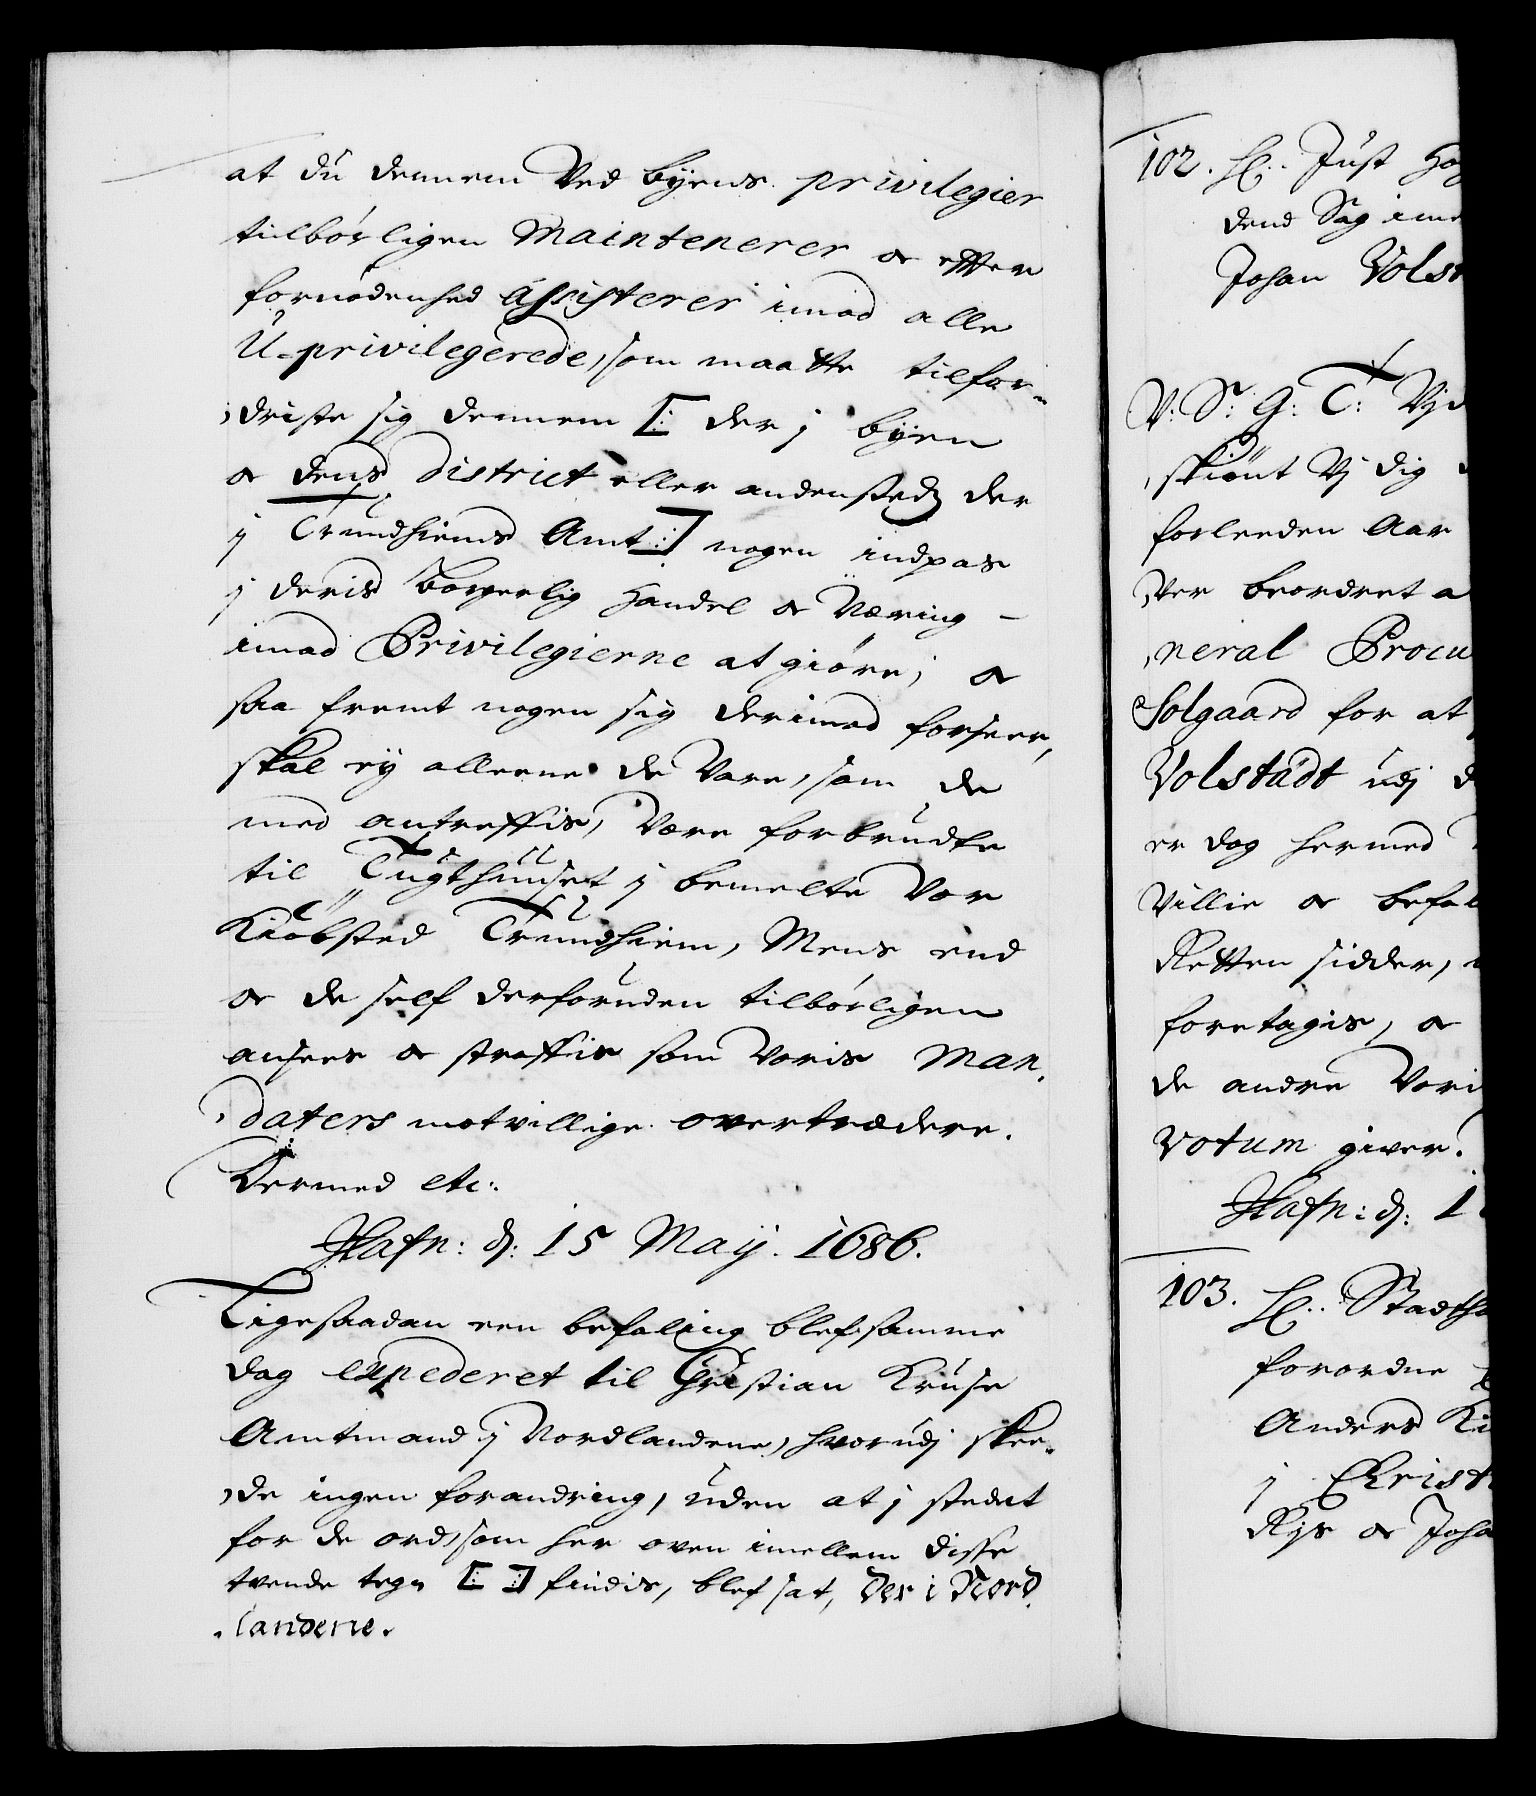 at du dennem Ved byens privilegier
tilbørligen Maintenerer oc effter
fornødenhed assisterer imod alle
U-privilegerede, som maatte tilfor-
driste sig dennem [: der j byen
oc dens district eller andensteds der
j Trundhiems Amt :] nogen indpas
j deris borgerlig Handel oc Næring
imod Privilegierne at giøre; oc
saa fremt nogen sig derimod forseer,
skal ey alleene de Vare, som de
med antreffis, Vere forbrudte
til Tugthuuset j bemelte Vor
Kiøbsted Trundhiem, Mens end
oc de self derforuden tilbørligen
ansees oc straffis som Voris Man-
daters motvillige overtrædere.
Dermed etc:
Hafn: d: 15 Maij. 1686.
Ligesaadan een befaling blef samme
dag expederet til Christian Kruse
Amtmand j Nordlandene, hvorudj skee-
de ingen forandring, uden at j stedet
for de ord, som her oven imellem disse
tvende tegn [: :] findis, blef sat, der i Nord
landene.
102. H: Just Høg
dend Sag ime
Johan Volst
V: Sr: G: T: Vid
skiønt Vj dig
forleeden Aar
ver beordret a
neral Procu
Solgaard for at
Volstadt udj d
er dog hermed
Villie oc befal
Retten sidder,
foretagis, oc
de andre Vori
Votum giver.
Hafn: d: 1
103. H: Stadtho
forordne
Anders Ki
j Christ
Rys oc Joha